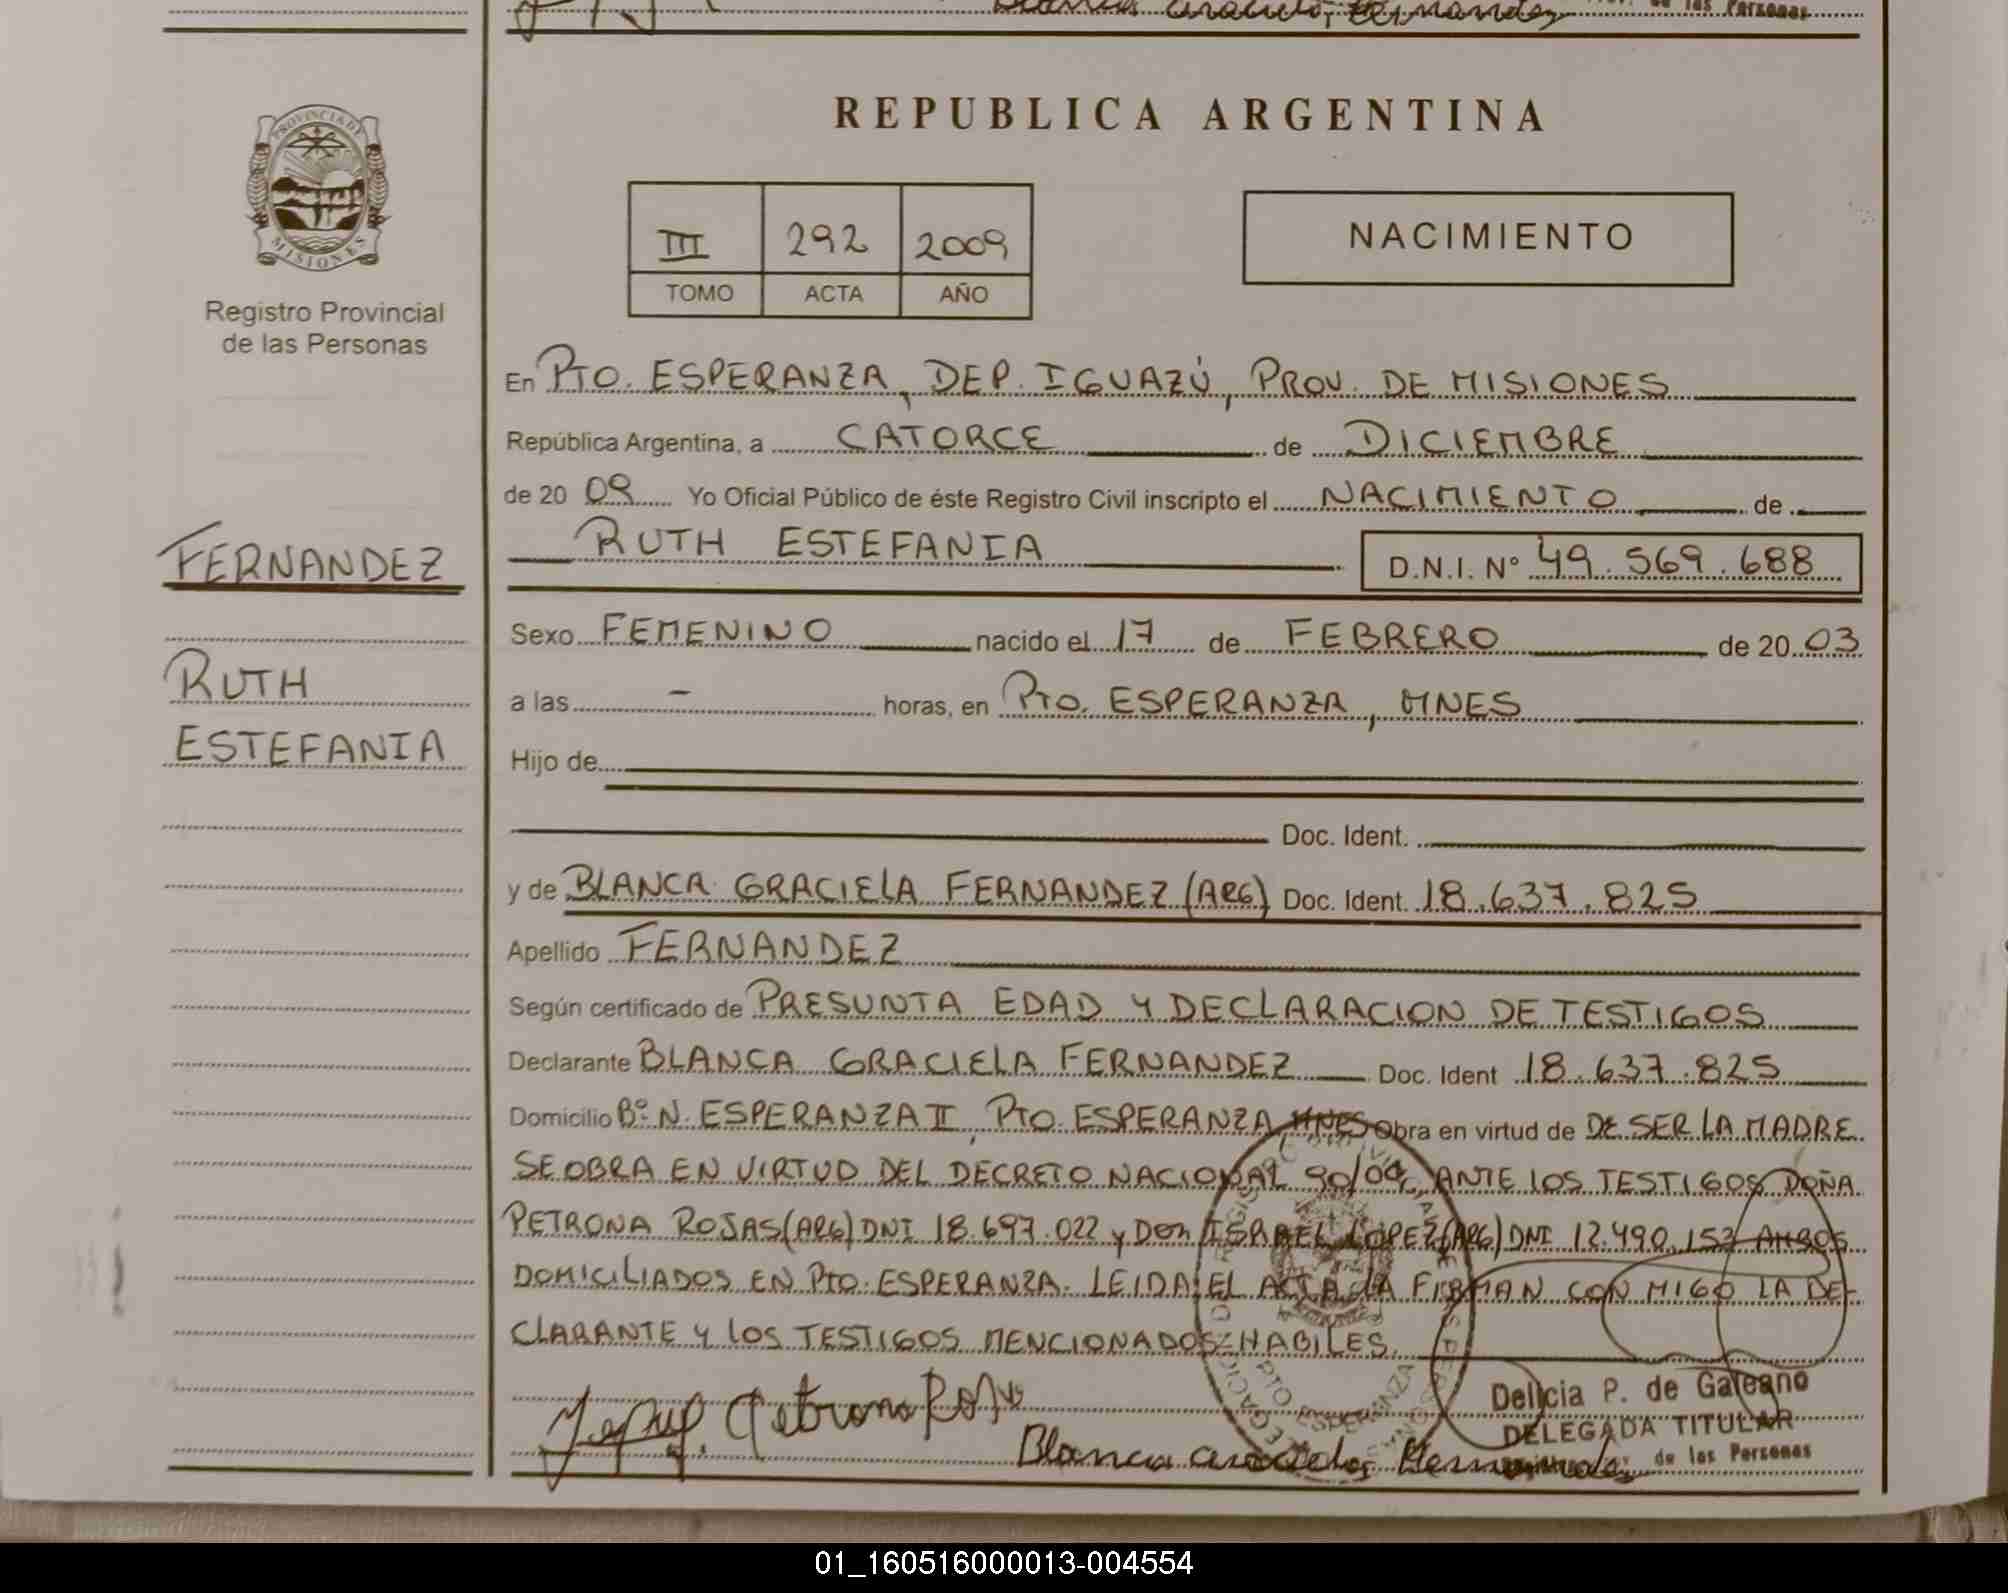 Blanca Graciela Fernandez
de las Personas
PROVINCIA DE
MISIONES
Registro Provincial
de las Personas
REPUBLICA ARGENTINA
III 292 2009
TOMO ACTA AÑO
NACIMIENTO
En PTO. ESPERANZA, DEP. IGUAZÚ, PROV. DE MISIONES
República Argentina, a CATORCE de DICIEMBRE
de 20 09 Yo Oficial Público de éste Registro Civil inscripto el NACIMIENTO de
RUTH ESTEFANIA D.N.I. N° 49.569.688
FERNANDEZ
RUTH
ESTEFANIA
Sexo FEMENINO nacido el 17 de FEBRERO de 20 03
a las - horas, en PTO. ESPERANZA, MNES
Hijo de
Doc. Ident.
y de BLANCA GRACIELA FERNANDEZ (ARG) Doc. Ident. 18.637.825
Apellido FERNANDEZ
Según certificado de PRESUNTA EDAD Y DECLARACION DE TESTIGOS
Declarante BLANCA GRACIELA FERNANDEZ Doc. Ident 18.637.825
Domicilio Bº N. ESPERANZA II, PTO. ESPERANZA, MNES Obra en virtud de DE SER LA MADRE
SE OBRA EN VIRTUD DEL DECRETO NACIONAL 90/09, ANTE LOS TESTIGOS DOÑA
PETRONA ROJAS (ARG) DNI 18.697.022 y DON ISRAEL LOPEZ (ARG) DNI 12.490.153 AMBOS
DOMICILIADOS EN PTO. ESPERANZA. LEIDA EL ACTA LA FIRMAN CON MIGO LA DE-
CLARANTE Y LOS TESTIGOS MENCIONADOS HABILES
Petrona Rojas
Blanca Graciela Fernandez
PTO ESPERANZA
Delicia P. de Galeano
DELEGADA TITULAR
de las Personas
01_160516000013-004554